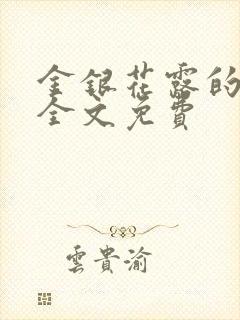 金銀花露的
全文免費
雲貴渝